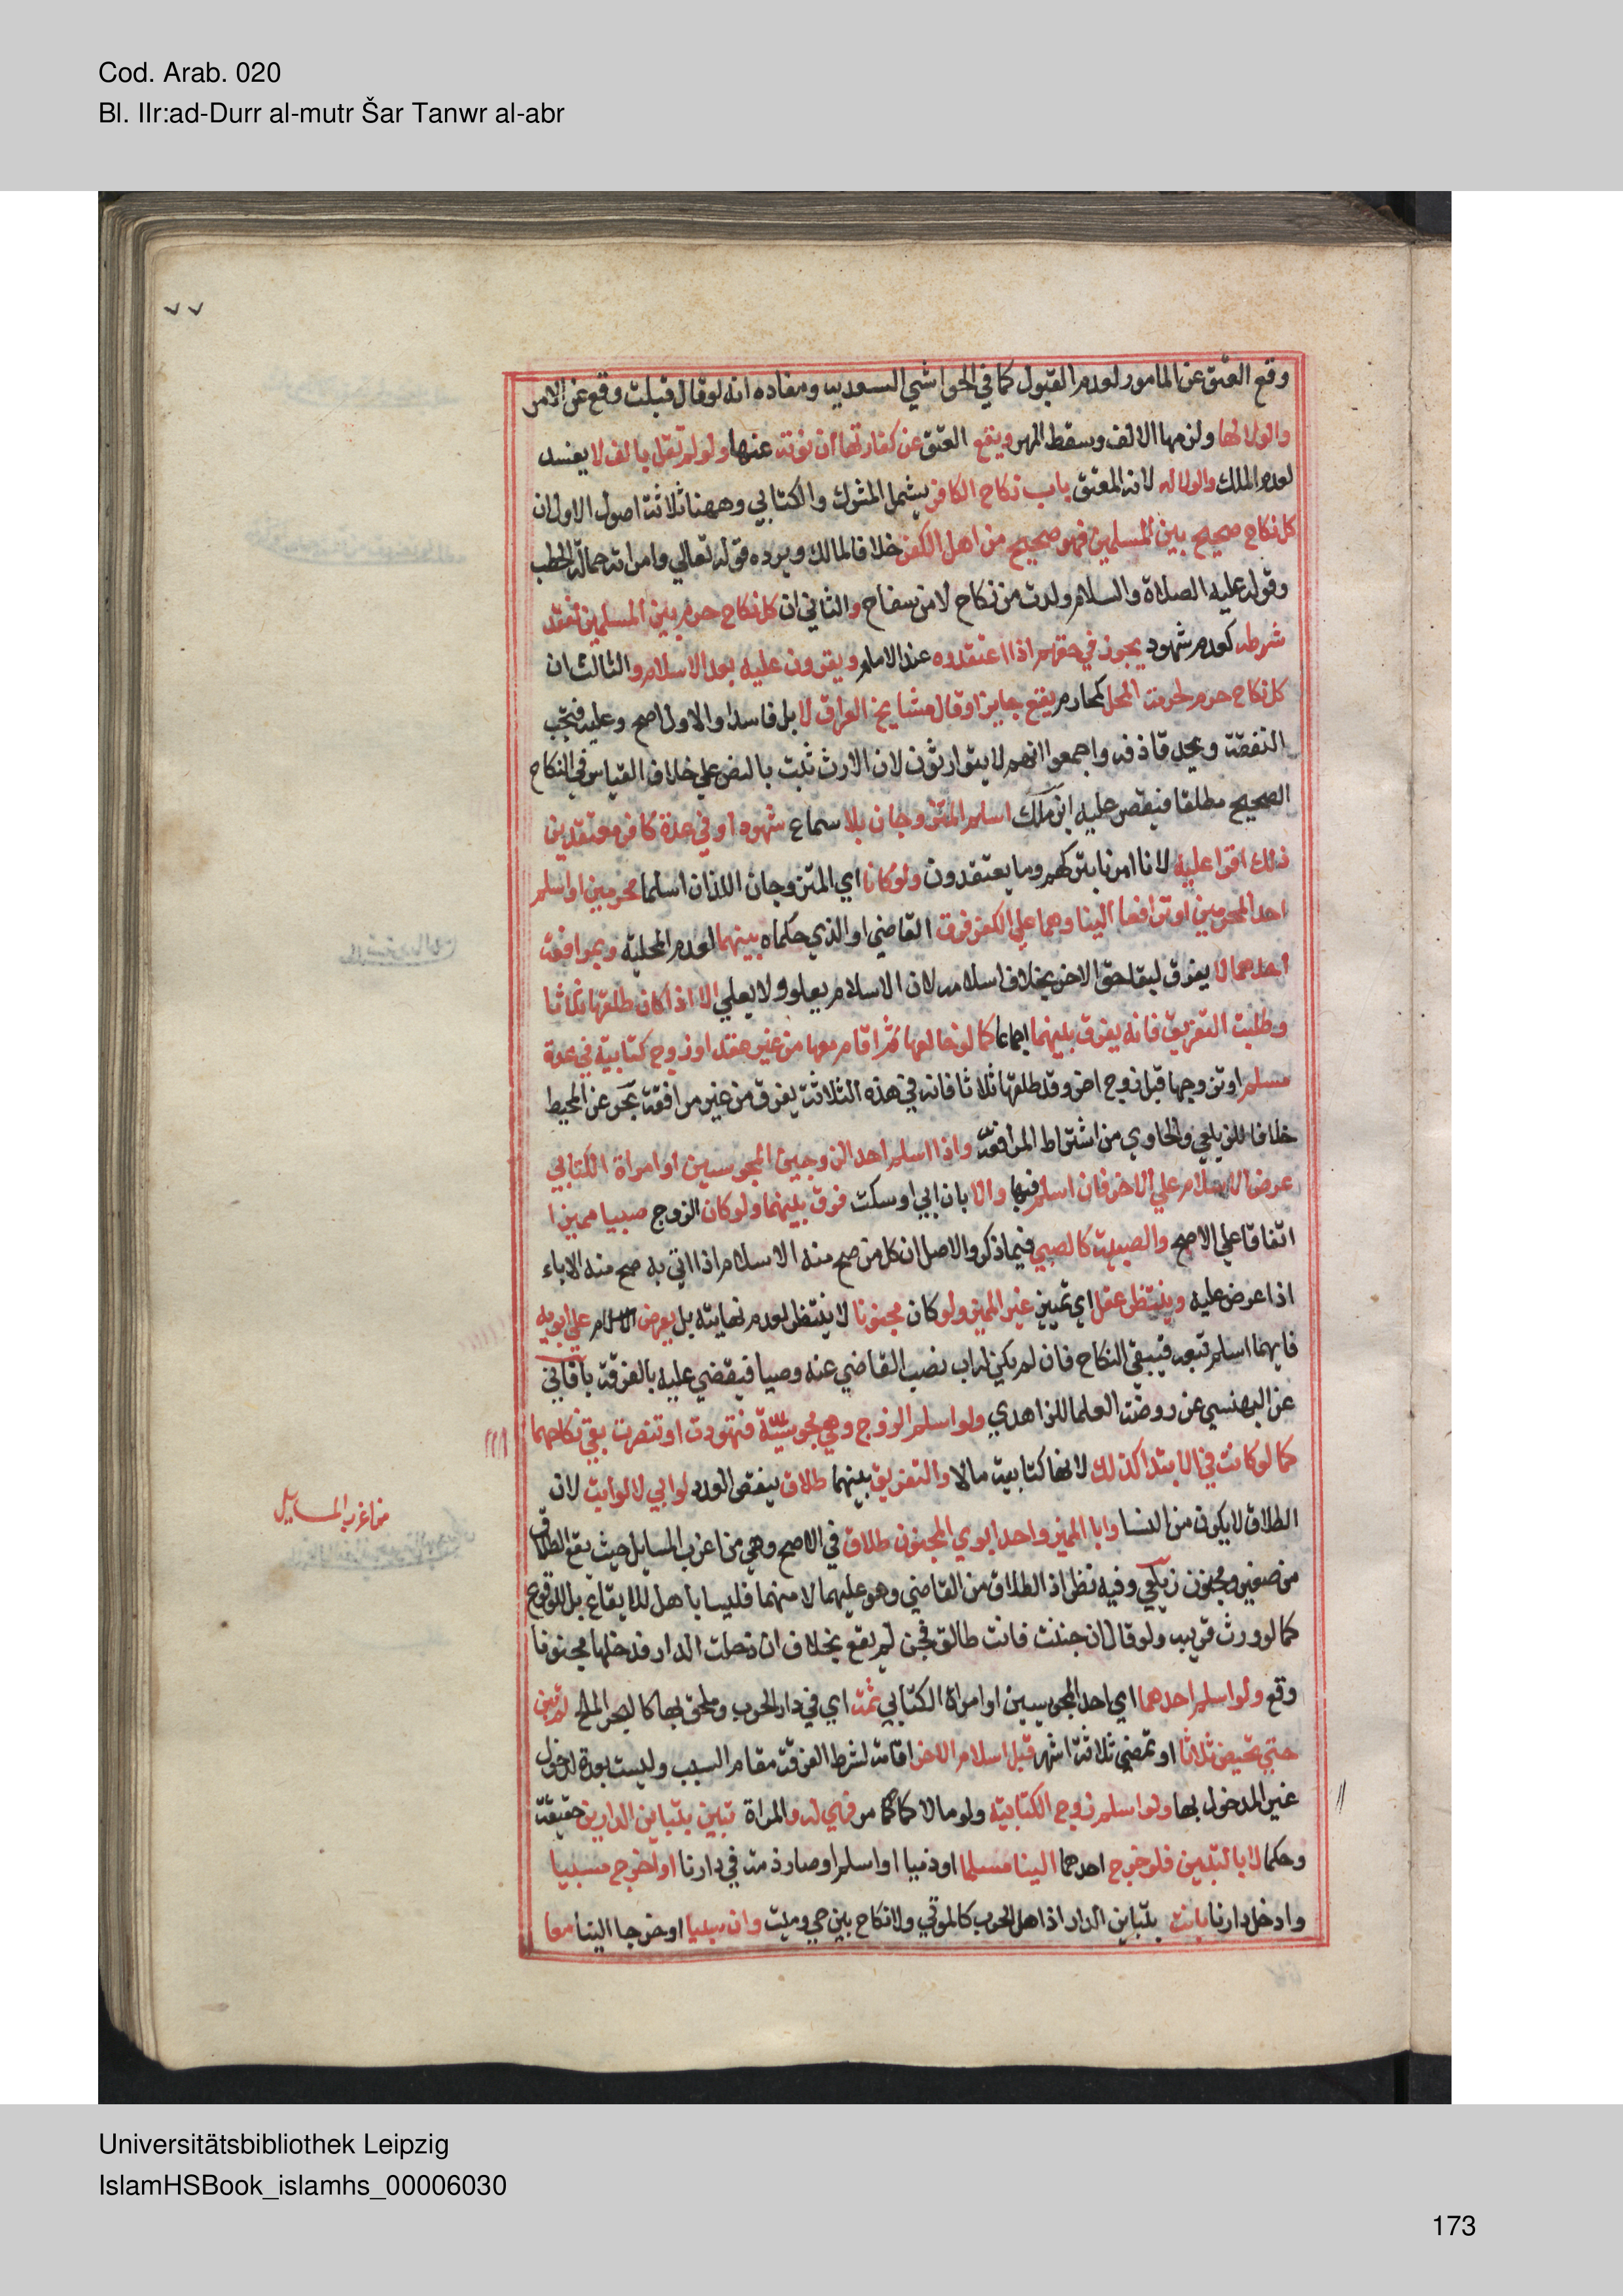 Cod. Arab. 020
Bl. IIr:ad-Durr al-mutr Šar Tanwr al-abr
٧٧
وقع العتق عن المامور لعدم القبول كما في الحواشي السعديه ومفاده انه لو قال قبلت وقع عن الامر
والولا لها ولزمها الالف وسقط المهر ويقع العتق عن كفارتها ان نوته عنها ولو لم تقل بالف لا يفسد
لعدم الملك والولا له لانه المعتق باب نكاح الكافر يشمل المشرك والكتابي وههنا ثلاثة اصول الاول ان
كل نكاح صحيح بين المسلمين فهو صحيح من اهل الكفر خلافا لمالك ويرده قوله تعالي وامراته حمالة الحطب
وقوله عليه الصلاة والسلام ولدت من نكاح لا من سفاح والثاني ان كل نكاح حرم بين المسلمين لفقد
شرطه كعدم شهود يجوز في حقهم اذا اعتقدوه عند الامام ويقرون عليه بعد الاسلام والثالث ان
كل نكاح حرم لحرمة المحل كمحارم يقع جايزا وقال مشايخ العراق لا بل فاسدا والاول اصح وعليه فتجب
النفقة ويحد قاذفه واجمعوا انهم لا يتوارثون لان الارث ثبت بالنص علي خلاف القياس في النكاح
الصحيح مطلقا فيقصر عليه ابن ملك اسلم المتزوجان بلا سماع شهود او في عدة كافر معتقدين
ذلك اقرا عليه لانا امرنا بتركهم وما يعتقدون ولو كانا اي المتزوجان اللذان اسلما محرمين او اسلم
احد المحرمين او ترافعا الينا وهما علي الكفر فرق القاضي او الذي حكماه بينهما لعدم المحلية وبمرافعة
احدهما لا يفرق لبقا حق الاخر بخلاف اسلامه لان الاسلام يعلو ولا يعلي الا اذا كان طلقها ثلاثا
وطلبت التفريق فانه يفرق بينهما اجماعا كما لو خالعها ثم اقام معها من غير عقد او زوج كتابية في عدة
مسلم او تزوجها قبل زوج اخر وقد طلقها ثلاثا فانه في هذه الثلاثة يفرق من غير مرافعة بحر عن المحيط
خلافا للزيلعي والحاوي من اشتراط المرافعة واذا اسلم احد الزوجين المجوسيين او امراة الكتابي
عرض الاسلام علي الاخر فان اسلم فبها والا بان ابي او سكت فرق بينهما ولو كان الزوج صبيا مميزا
اتفاقا علي الاصح والصبية كالصبي فيما ذكر والاصل ان كل من صح منه الاسلام اذا اتي به صح منه الاباء
اذا عرض عليه وينتظر عقل اي تمييز غير المميز ولو كان مجنونا لا ينتظر لعدم نهايته بل يعرض الاسلام علي ابويه
فايهما اسلم تبعه فيبقي النكاح فان لم يكن له اب نصب القاضي عنه وصيا فيقضي عليه بالفرقة باقاني
عن البهنسي عن روضة العلما للزاهدي ولو اسلم الزوج وهي مجوسية فتهودت او تنصرت بقي نكاحهما
كما لو كانت في الابتدا كذلك لانها كتابية مالا والتفريق بينهما طلاق ينقص العدد لو ابي لا لو ابت لان
الطلاق لا يكون من النسا وابا المميز واحد ابوي المجنون طلاق في الاصح وهي من اغرب المسايل حيث يقع الطلاق
من صغير ومجنون زيلعي وفيه نظر اذ الطلاق من القاضي وهو عليهما لا منهما فليسا باهل للايقاع بل للوقوع
كما لو ورث قريبه ولو قال ان جننت فانت طالق فجن لم يقع بخلاف ان دخلت الدار فدخلها مجنونا
وقع ولو اسلم احدهما اي احد المجوسيين او امراة الكتابي ثمة اي في دار الحرب وملحق بها كالبحر الملح لم تبن
حتي تحيض ثلاثا او تمضي ثلاثة اشهر قبل اسلام الاخر اقامة لشرط الفرقة مقام السبب وليست بعدة لدخول
غير المدخول بها ولو اسلم زوج الكتابية ولو مالا كما مر فهي له والمراة تبين بتباين الدارين حقيقة
وحكما لا بالتبين فلو خرج احدهما الينا مسلما او ذميا او اسلم او صار ذمة في دارنا او اخرج مسبيا
وادخل دارنا بانت بتباين الدار اذ اهل الحرب كالموتي ولا نكاح بين حي وميت وان سبيا او خرجا الينا معا
من اغرب المسايل
Universitätsbibliothek Leipzig
IslamHSBook_islamhs_00006030
173